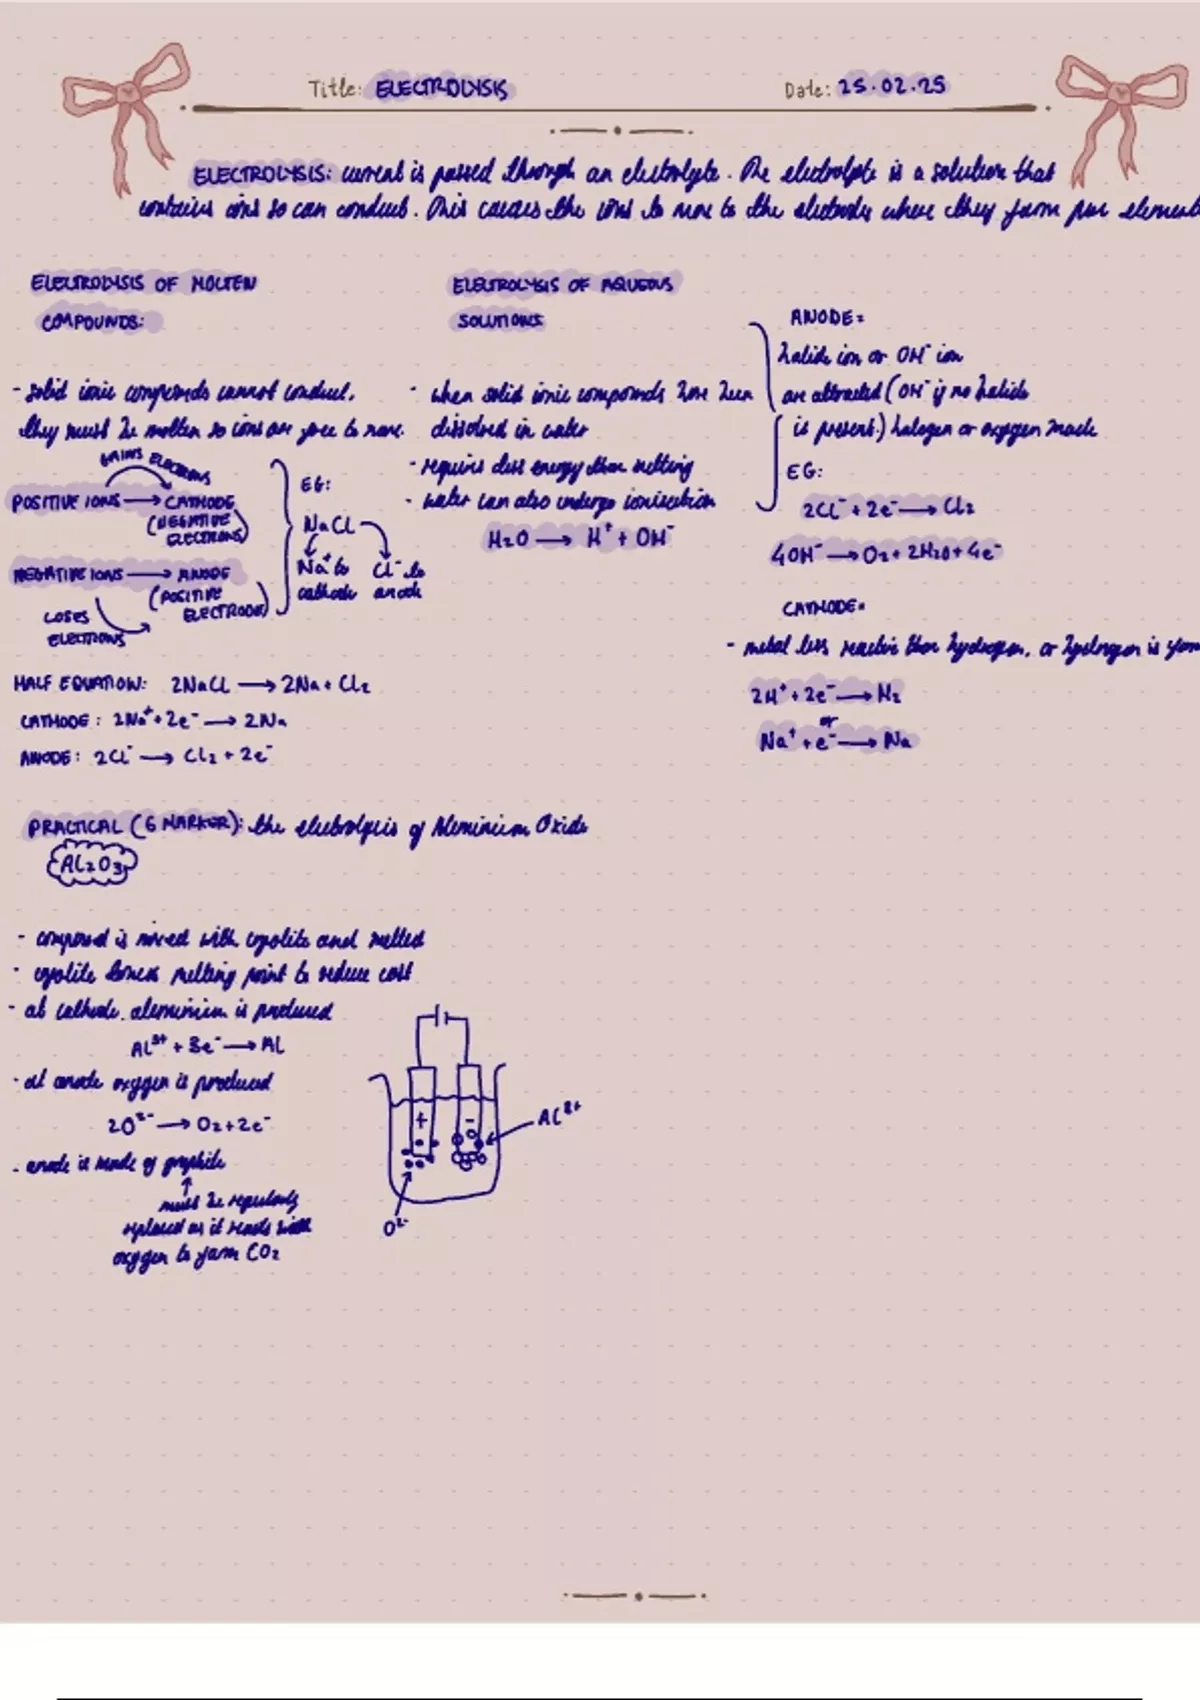 Title: ELECTROLYSIS
Date: 25.02.25
ELECTROLYSIS: current is passed through an electrolyte. The electrolyte is a solution that
contains ions so can conduct. This causes the ions to move to the electrodes where they form pure element
ELECTROLYSIS OF MOLTEN
COMPOUNDS:
- solid ionic compounds cannot conduct.
they must be molten so ions are free to move.
GAINS ELECTRONS
POSITIVE IONS → CATHODE
(NEGATIVE
ELECTRONS)
NEGATIVE IONS → ANODE
(POSITIVE
ELECTRODE)
LOSES
ELECTRONS
EG:
NaCl
Na⁺ to
cathode
Cl⁻ to
anode
HALF EQUATION: 2NaCl → 2Na + Cl₂
CATHODE: 2Na⁺ + 2e⁻ → 2Na
ANODE: 2Cl⁻ → Cl₂ + 2e⁻
ELECTROLYSIS OF AQUEOUS
SOLUTIONS
- when solid ionic compounds have been
dissolved in water
- requires less energy than melting
- water can also undergo ionisation
H₂O → H⁺ + OH⁻
ANODE=
halide ion or OH⁻ ion
are attracted (OH⁻ if no halide
is present.) halogen or oxygen made
EG:
2Cl⁻ + 2e⁻ → Cl₂
4OH⁻ → O₂ + 2H₂O + 4e⁻
CATHODE=
- metal less reactive than hydrogen, or hydrogen is form
2H⁺ + 2e⁻ → H₂
or
Na⁺ + e⁻ → Na
PRACTICAL (6 MARKER): the electrolysis of Aluminium Oxide
Al₂O₃
- compound is mixed with cryolite and melted
- cryolite lowers melting point to reduce cost
- at cathode aluminium is produced
Al³⁺ + 3e⁻ → Al
- at anode oxygen is produced
2O²⁻ → O₂ + 2e⁻
- anode is made of graphite
must be regularly
replaced as it reacts with
oxygen to form CO₂
+
-
O²⁻